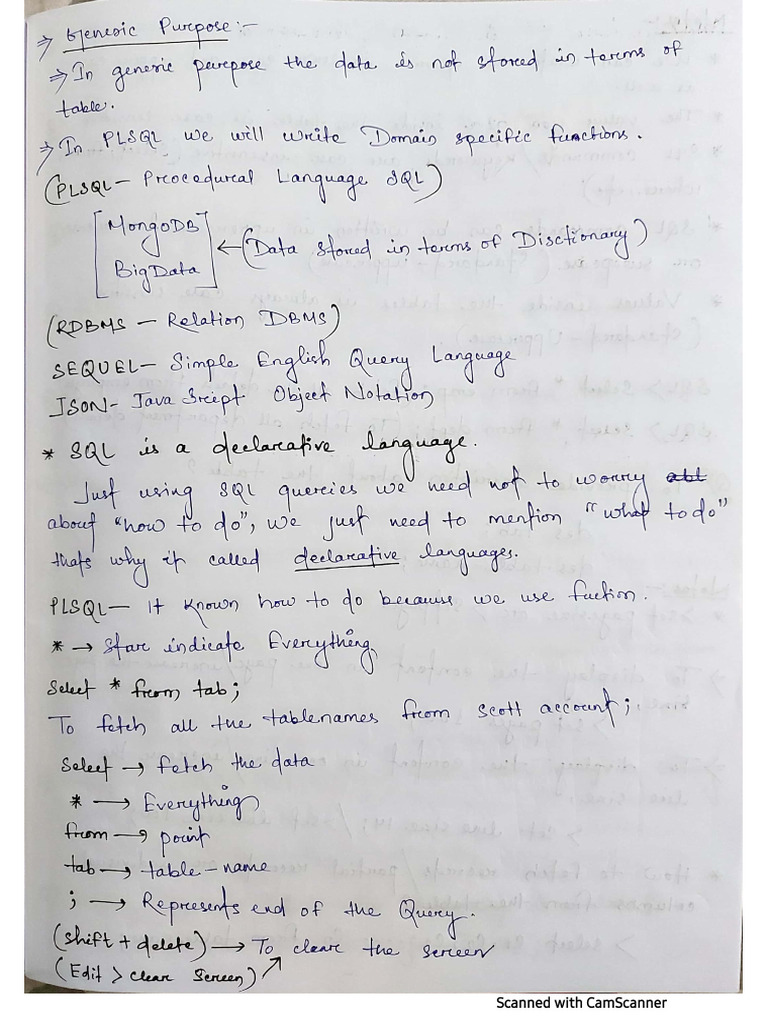 ⇒ Generic Purpose:-
⇒ In generic purpose the data is not stored in terms of
table.
⇒ In PLSQL we will write Domain specific functions.
(PLSQL - Procedural Language SQL)
MongoDB
BigData
← (Data stored in terms of Disctionary)
(RDBMS - Relation DBMS)
SEQUEL - Simple English Query Language
JSON - Java Script Object Notation
* SQL is a declarative language.
Just using SQL queries we need not to worry abt
about "how to do", we just need to mention "what to do"
thats why it called declarative languages.
PLSQL - It known how to do because we use fuction.
* → Star indicate Everything
Select * from tab;
To fetch all the tablenames from scott account;
Select → fetch the data
* → Everything
from → point
tab → table-name
; → Represents end of the Query.
(shift + delete) → To clear the screen
(Edit > clear Screen) ↗
Scanned with CamScanner